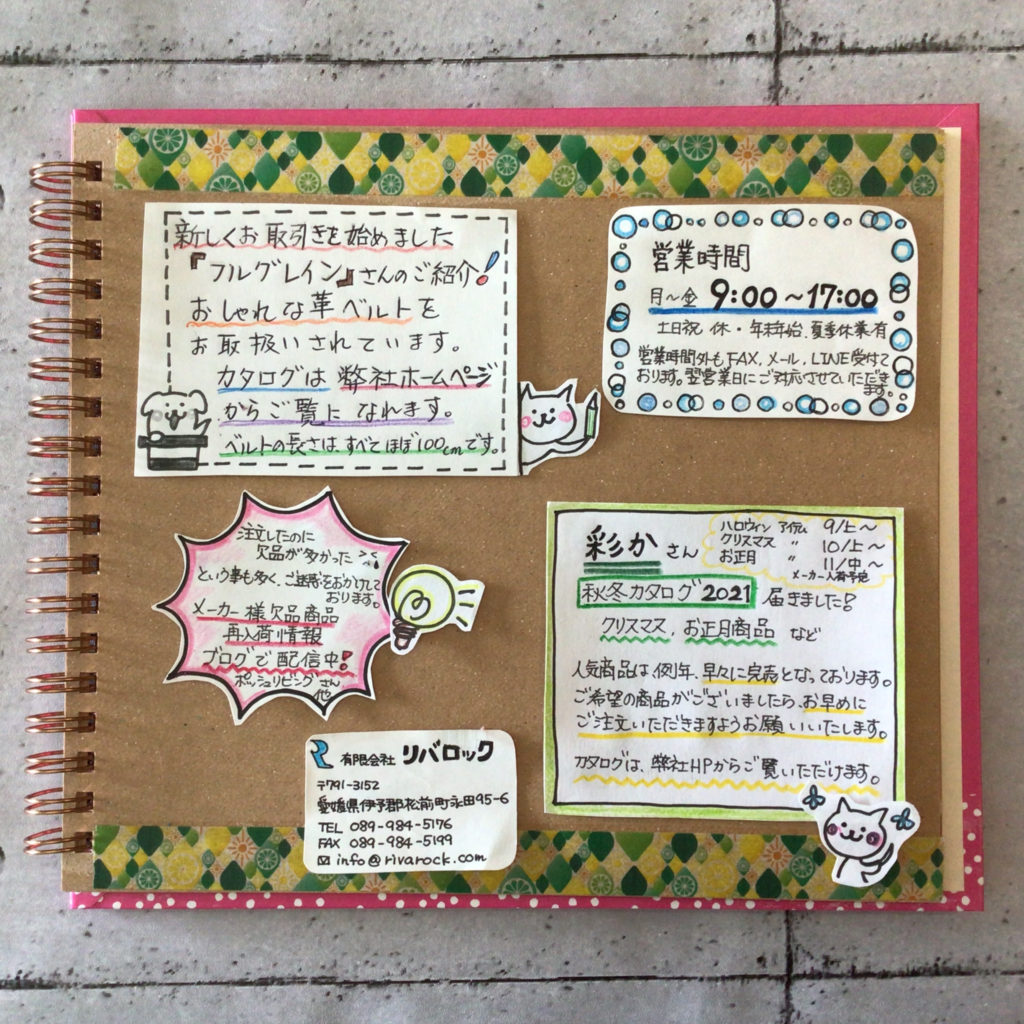 新しくお取引きを始めました
『フルグレイン』さんのご紹介!
おしゃれな革ベルトを
お取扱いされています。
カタログは 弊社ホームページ
からご覧になれます。
ベルトの長さは、すべてほぼ100cmです。
営業時間
月〜金 9:00〜17:00
土日祝 休・年末年始、夏季休業有
営業時間外も、FAX、メール、LINE受付て
おります。翌営業日にご対応させていただき
ます。
注文したのに
欠品が多かった
という事も多く、ご迷惑をおかけして
おります。
メーカー様欠品商品
再入荷情報
ブログで配信中!
ポッシュリビングさん
他
彩か さん
ハロウィン アイテム 9/上〜
クリスマス 〃 10/上〜
お正月 〃 11/中〜
メーカー入荷予定
秋冬カタログ2021 届きました!
クリスマス、お正月商品 など
人気商品は、例年、早々に完売となっております。
ご希望の商品がございましたら、お早めに
ご注文いただきますようお願いいたします。
カタログは、弊社HPからご覧いただけます。
有限会社 リバロック
〒791-3152
愛媛県伊予郡松前町永田95-6
TEL 089-984-5176
FAX 089-984-5199
✉ info@rivarock.com